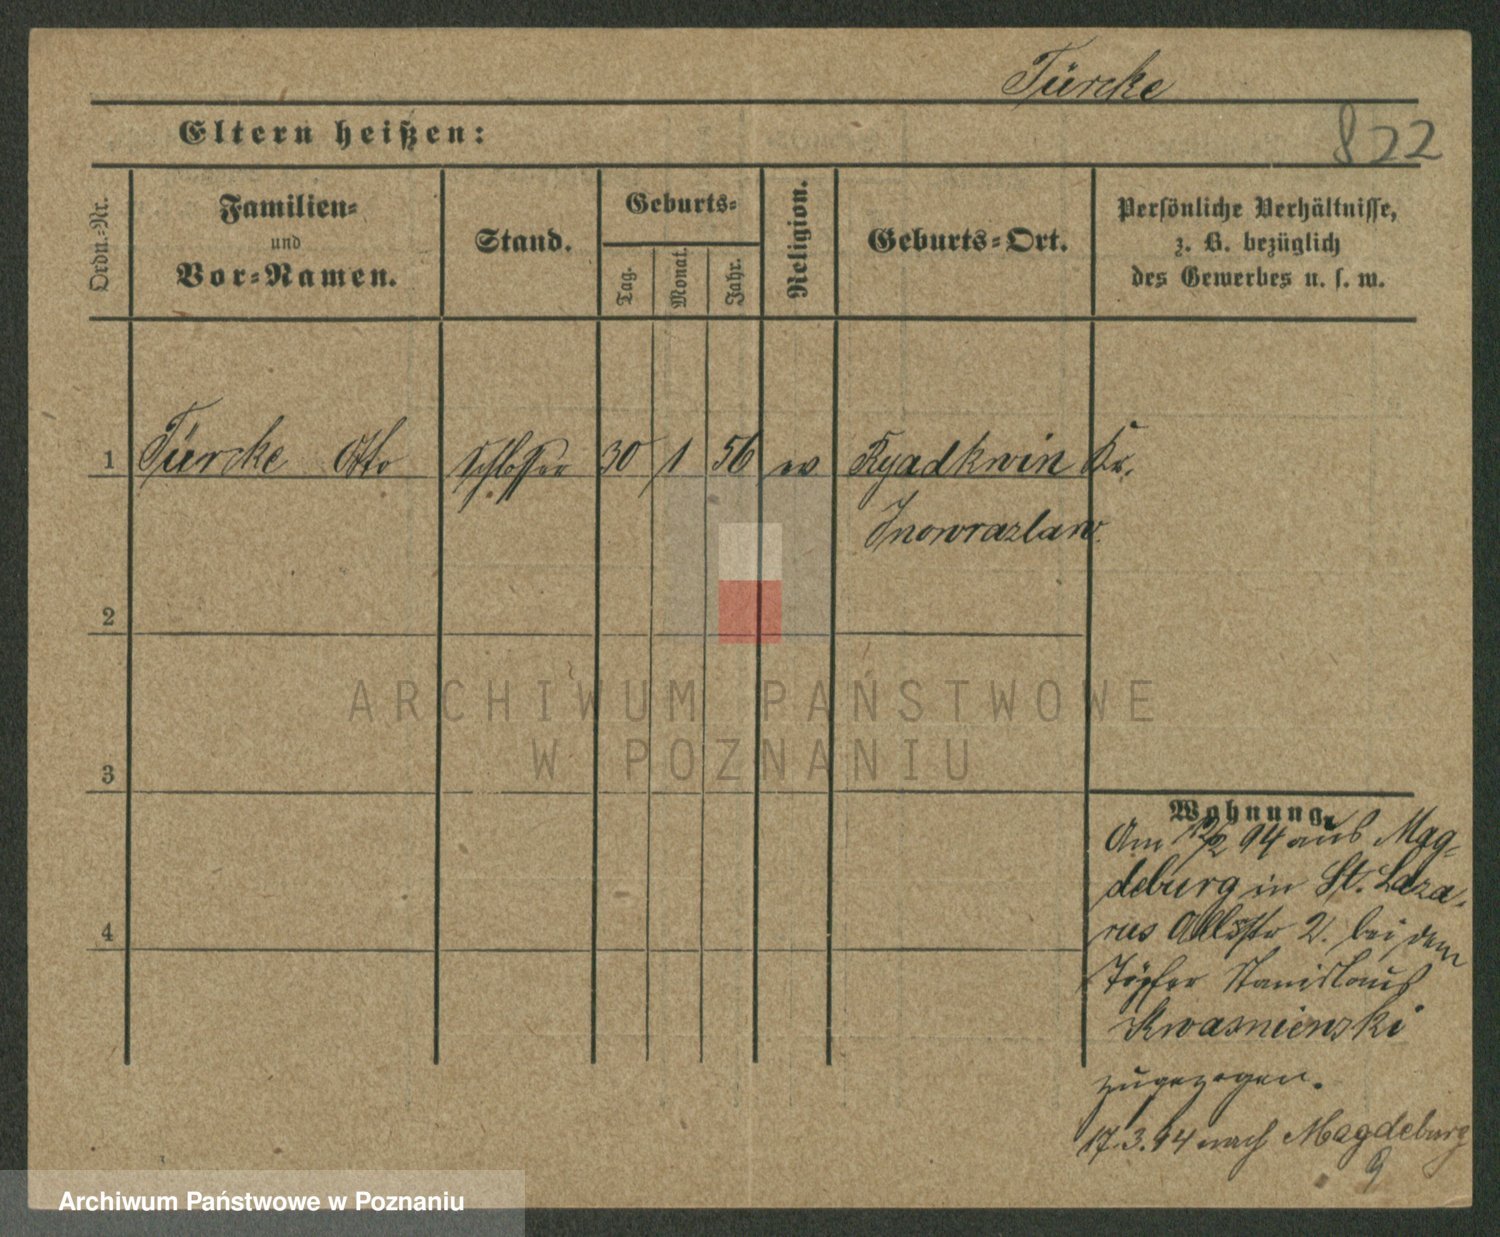 Türcke
Eltern heißen:
822
Ordn.-Nr.
Familien-
und
Vor-Namen.
Stand.
Geburts-
Tag.
Monat.
Jahr.
Religion.
Geburts-Ort.
Persönliche Verhältnisse,
z. B. bezüglich
des Gewerbes u. s. w.
1 Türcke Otto Schlosser 30 1 56 ev Kyadkwin Kr.
Inowrazlaw.
2
3
4
Wohnung.
Am 12/2 94 aus Mag-
deburg in St. Laza-
rus 2. bei dem
Töpfer Stanislaus
Kwasniewski
zugezogen.
17.3.94 nach Magdeburg
ARCHIWUM PAŃSTWOWE
W POZNANIU
Archiwum Państwowe w Poznaniu